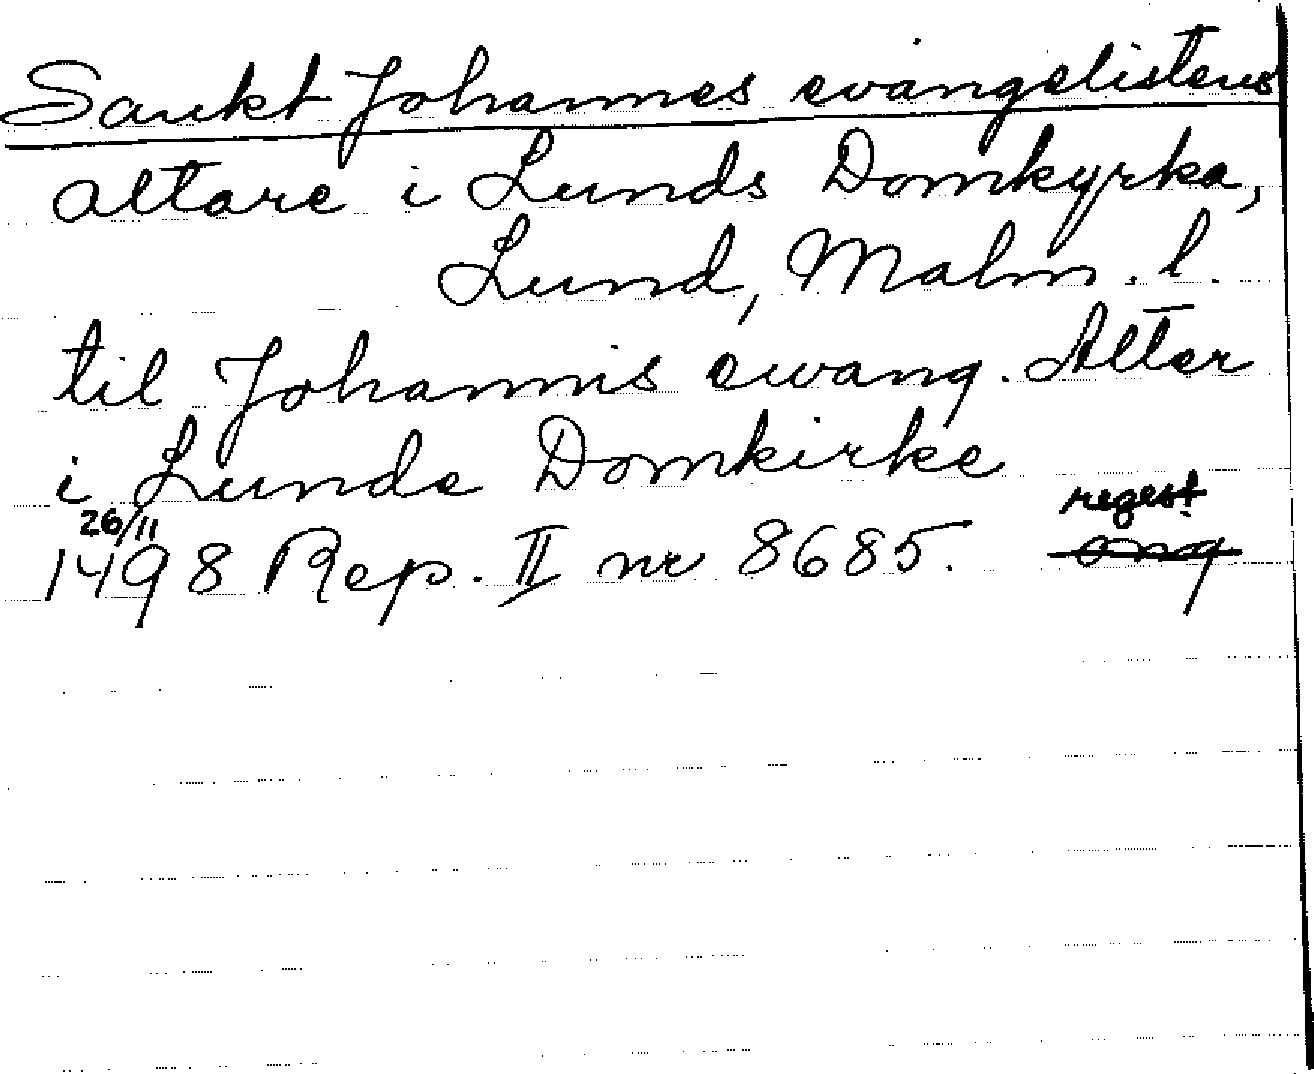 Sankt Johannes evangelistens
altare i Lunds Domkyrka,
Lund, Malm. l.
til Johannis ewang. Alter
i Lunde Domkirke
regest
26/11
1498 Rep. II nr 8685. orig